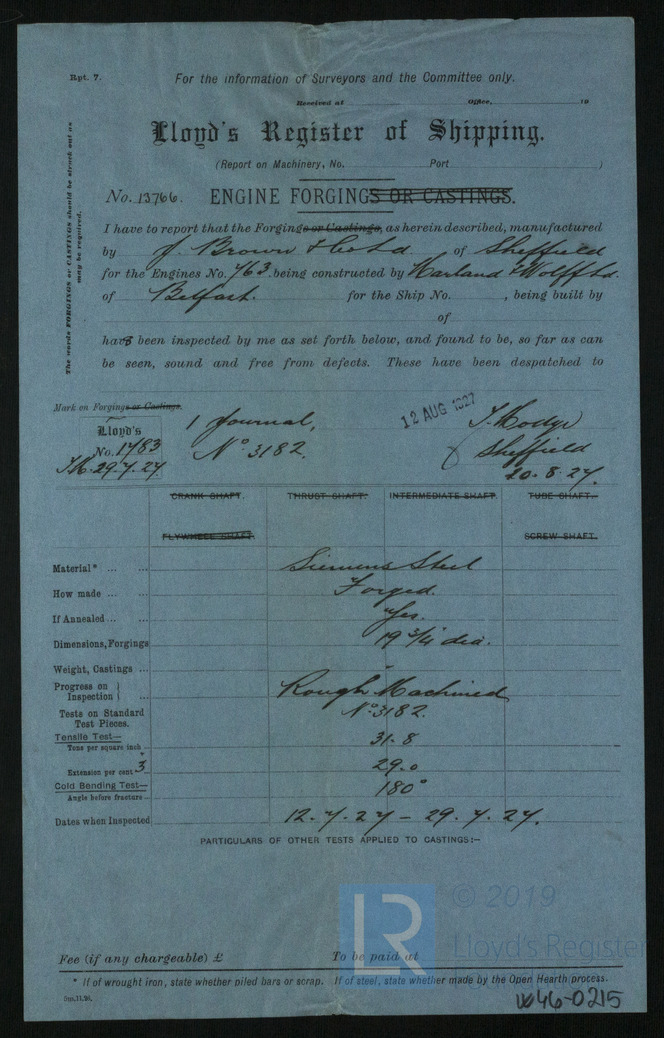 Rpt. 7.
For the information of Surveyors and the Committee only.
Received at Office, 19
Lloyd's Register of Shipping.
(Report on Machinery, No. Port )
The words FORGINGS or CASTINGS should be struck out as
may be required.
No. 13766. ENGINE FORGINGS OR CASTINGS.
I have to report that the Forgings or Castings, as herein described, manufactured
by J. Brown & Co Ltd of Sheffield
for the Engines No. 763. being constructed by Harland & Wolff Ltd.
of Belfast. for the Ship No. , being built by
of
have been inspected by me as set forth below, and found to be, so far as can
be seen, sound and free from defects. These have been despatched to
Mark on Forgings or Castings.
Lloyd's
No. 1783
29.7.27
1 Journal,
No. 3182.
12 AUG 1927
Sheffield
20.8.27.
CRANK SHAFT. THRUST SHAFT. INTERMEDIATE SHAFT. TUBE SHAFT.
FLYWHEEL SHAFT. SCREW SHAFT.
Material* ... ... Siemens Steel
How made ... ... Forged.
If Annealed ... ... Yes.
Dimensions, Forgings 19 3/4 dia.
Weight, Castings ... "
Progress on Inspection } ... Rough Machined
Tests on Standard Test Pieces. No. 3182.
Tensile Test—
Tons per square inch 31.8
Extension per cent 3 29.0
Cold Bending Test—
Angle before fracture 180°
Dates when Inspected 12.7.27 – 29.7.27.
PARTICULARS OF OTHER TESTS APPLIED TO CASTINGS:–
LR
© 2019
Lloyd's Register
Fee (if any chargeable) £ To be paid at
* If of wrought iron, state whether piled bars or scrap. If of steel, state whether made by the Open Hearth process.
W46-0215